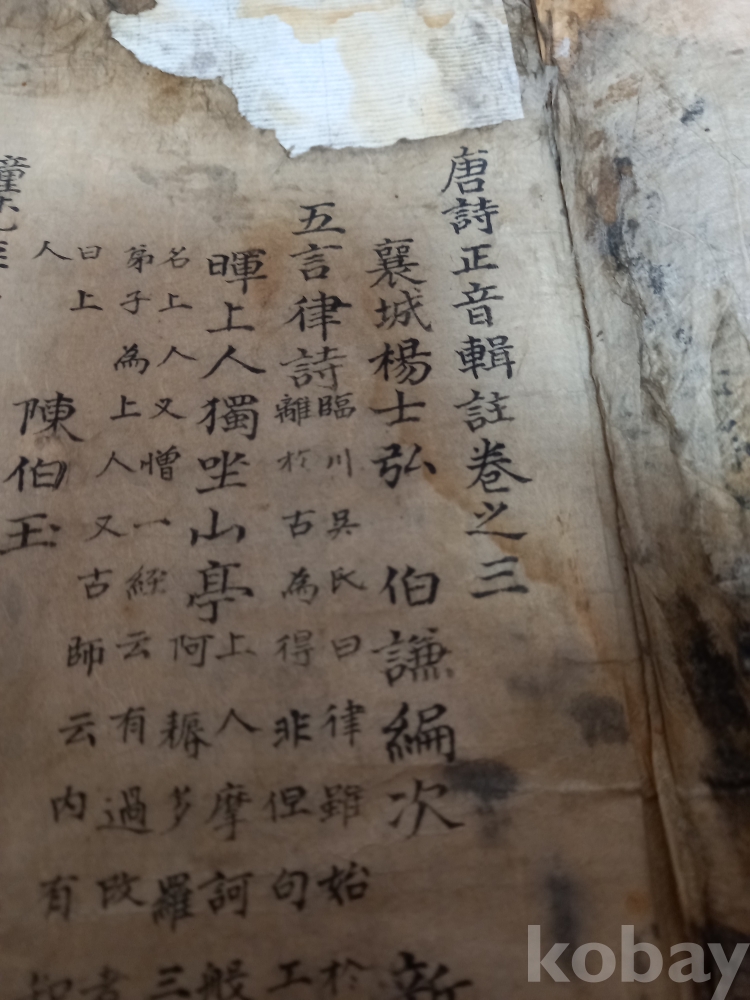 唐詩正音輯註卷之三
襄城楊士弘 伯謙編次 新
五言律詩
臨川吳氏曰律雖始於
離於古為得非但句工
暉上人獨坐山亭
上人摩訶般
阿耨多羅三
名上人又憎一經云有過改者
弟子為上人又古師云内有
曰上
人
陳伯玉